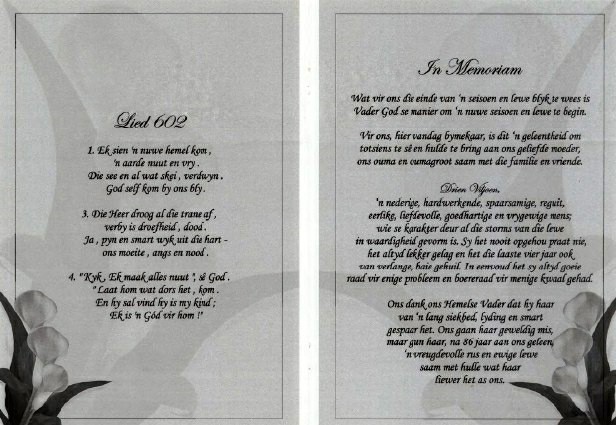 Lied 602
1. Ek sien 'n nuwe hemel kom ,
'n aarde nuut en vry .
Die see en al wat skei , verdwyn .
God self kom by ons bly.
3. Die Heer droog al die trane af ,
verby is droefheid , dood .
Ja , pyn en smart wyk uit die hart -
ons moeite , angs en nood .
4. "Kyk , Ek maak alles nuut ", sê God .
" Laat hom wat dors het , kom .
En hy sal vind hy is my kind ;
Ek is 'n Gód vir hom !"
In Memoriam
Wat vir ons die einde van 'n seisoen en lewe blyk te wees is
Vader God se manier om 'n nuwe seisoen en lewe te begin.
Vir ons, hier vandag bymekaar, is dit 'n geleentheid om
totsiens te sê en hulde te bring aan ons geliefde moeder,
ons ouma en oumagroot saam met die familie en vriende.
Drien Viljoen,
'n nederige, hardwerkende, spaarsamige, reguit,
eerlike, liefdevolle, goedhartige en vrygewige mens;
wie se karakter deur al die storms van die lewe
in waardigheid gevorm is. Sy het nooit opgehou praat nie,
het altyd lekker gelag en het die laaste vier jaar ook
van verlange, baie gehuil. In eenvoud het sy altyd goeie
raad vir enige probleem en boereraad vir menige kwaal gehad.
Ons dank ons Hemelse Vader dat hy haar
van 'n lang siekbed, lyding en smart
gespaar het. Ons gaan haar geweldig mis,
maar gun haar, na 86 jaar aan ons geleen,
'n vreugdevolle rus en ewige lewe
saam met hulle wat haar
liewer het as ons.